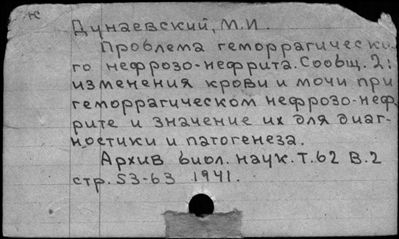 к
Дунаевский, М.И.
Проблема геморрагически-
го нефрозо-нефрита. Сообщ. 2:
изменения крови и мочи при
геморрагическом нефрозо-неф-
рите и значение их для диаг-
ностики и патогенеза.
Архив биол. наук. Т. 62 В. 2
стр. 53-63 1941.